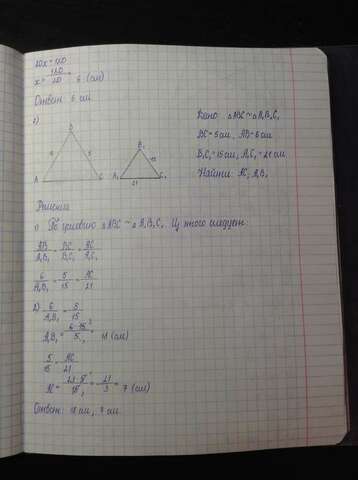 20x = 120
x = 120/20 = 6 (см)
Ответ: 6 см
2)
B
6 5
A C
B₁
15
A₁ C₁
21
Дано: △ABC ~ △A₁B₁C₁
BC = 5 см, AB = 6 см
B₁C₁ = 15 см, A₁C₁ = 21 см
Найти: AC, A₁B₁
Решение
1) По условию △ABC ~ △A₁B₁C₁. Из этого следует
AB/A₁B₁ = BC/B₁C₁ = AC/A₁C₁
6/A₁B₁ = 5/15 = AC/21
2) 6/A₁B₁ = 5/15
A₁B₁ = 6·15/5 = 18 (см)
5/15 = AC/21
AC = 21·5/15 = 21/3 = 7 (см)
Ответ: 18 см, 7 см